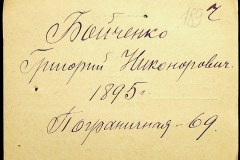 ч
Бойченко
Григорий Никонорович.
1895г.
Пограничная - 69.